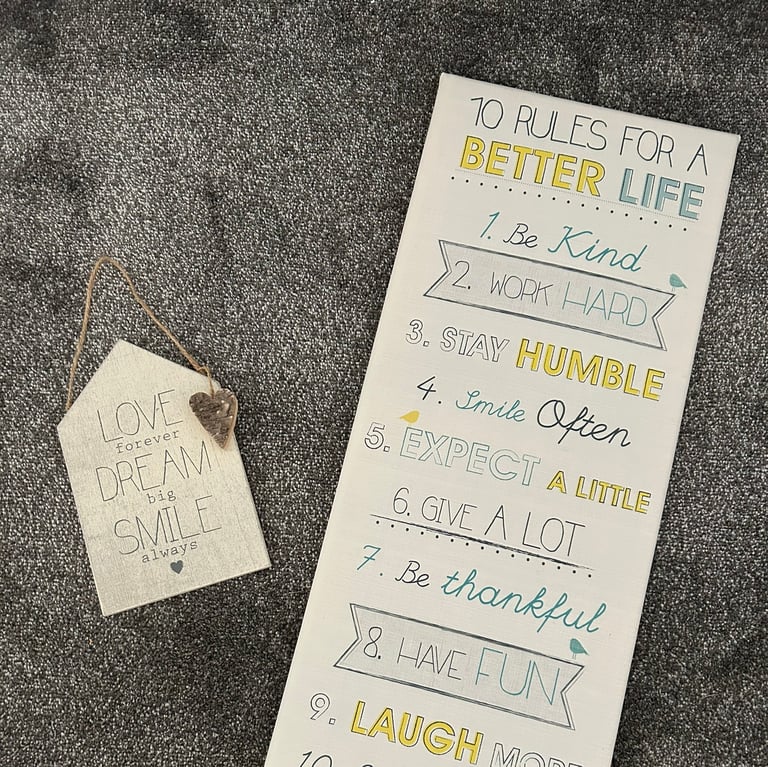 LOVE
forever
DREAM
big
SMILE
always
10 RULES FOR A
BETTER LIFE
1. Be Kind
2. WORK HARD
3. STAY HUMBLE
4. Smile Often
5. EXPECT A LITTLE
6. GIVE A LOT
7. Be thankful
8. HAVE FUN
9. LAUGH MORE
10.